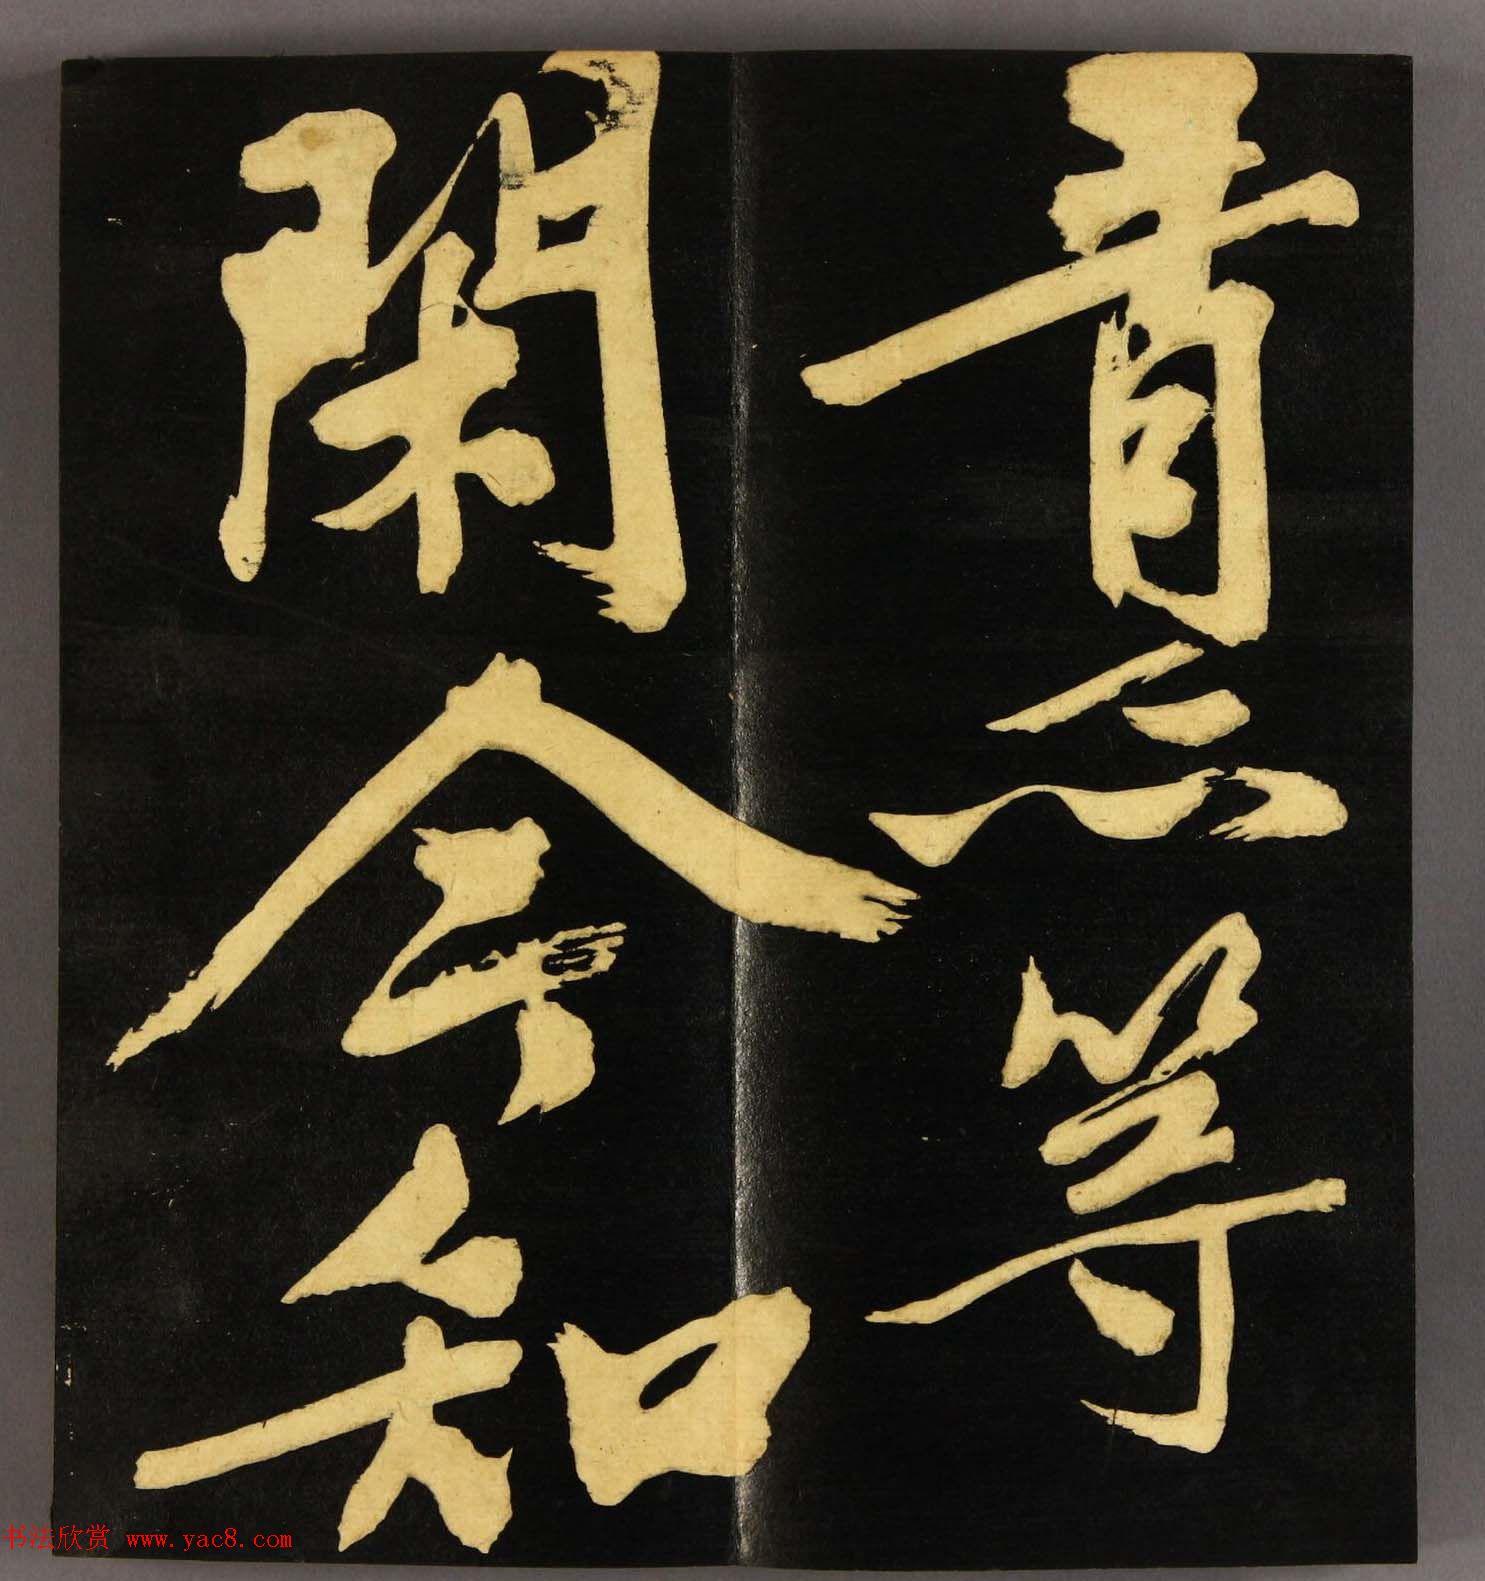 等
閑今知
书法欣赏 www.yac8.com